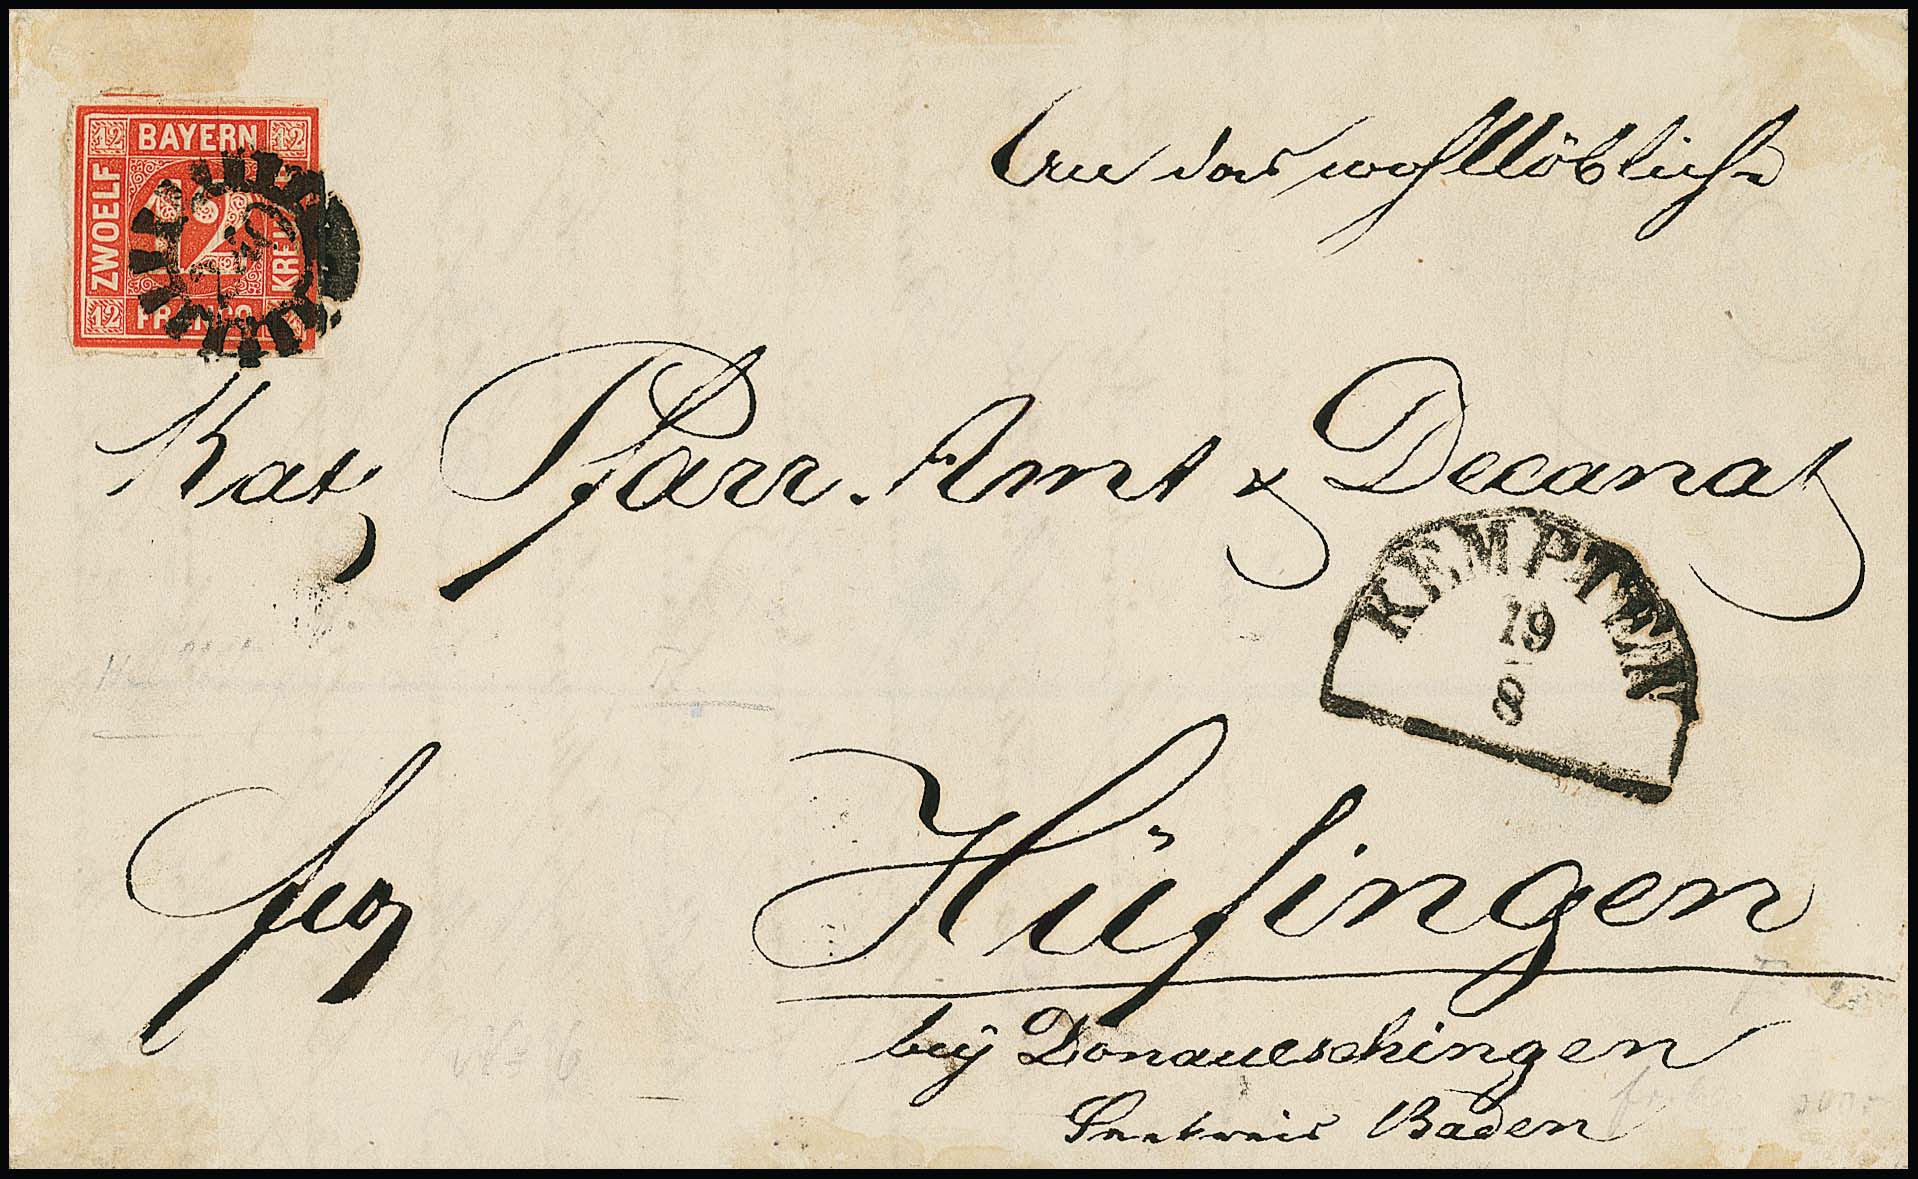 12 BAYERN 12
ZWOELF
12
KREU
12 FRANCO
An das wohllöbliche
Kat. Pfarr-Amt & Decanat
KEMPTEN
19
8
frco
Hüfingen
bey Donaueschingen
Seekreis Baden